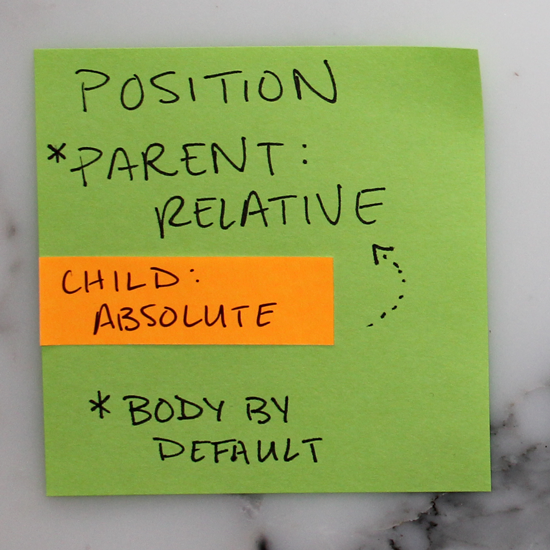 POSITION
*PARENT:
RELATIVE
CHILD:
ABSOLUTE
*BODY BY
DEFAULT